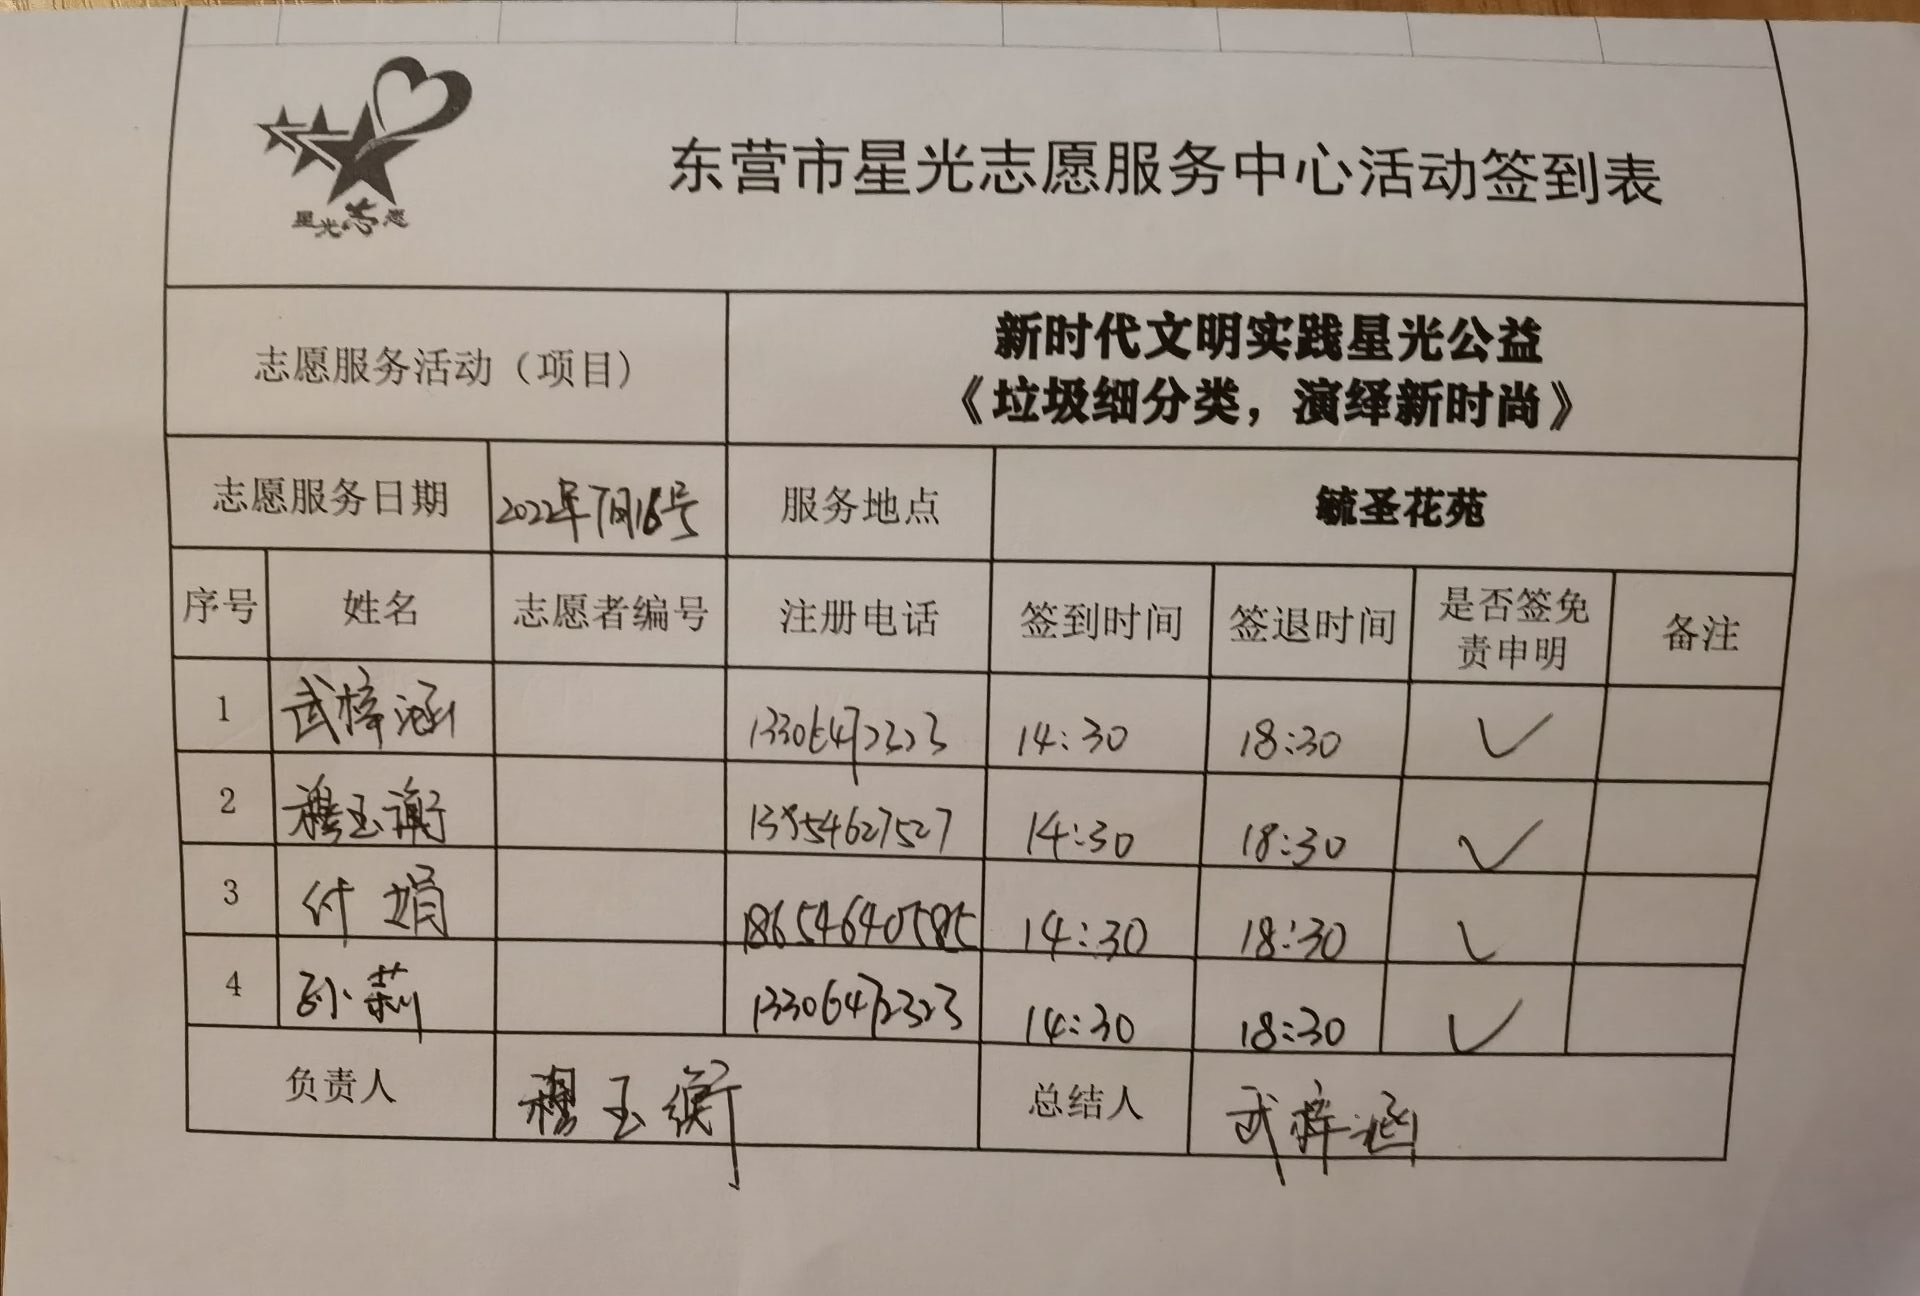 星光志愿
东营市星光志愿服务中心活动签到表
志愿服务活动（项目）
新时代文明实践星光公益
《垃圾细分类，演绎新时尚》
志愿服务日期 2022年7月16号 服务地点 毓圣花苑
序号 姓名 志愿者编号 注册电话 签到时间 签退时间 是否签免
责申明 备注
1 武梓涵 13306472323 14:30 18:30 ✓
2 穆玉衡 13954627527 14:30 18:30 ✓
3 付娟 18654640585 14:30 18:30 ✓
4 孙莉 13306472323 14:30 18:30 ✓
负责人 穆玉衡 总结人 武梓涵